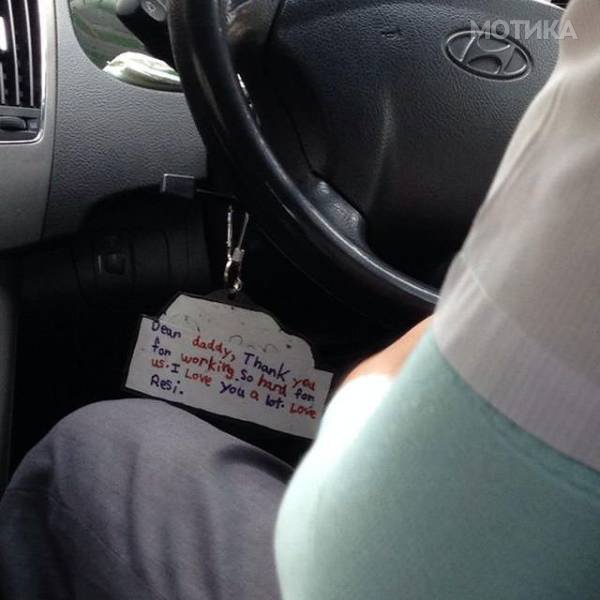 МОТИКА
Dear daddy, Thank you
for working so hard for
us. I Love you a lot. Love
Resi.